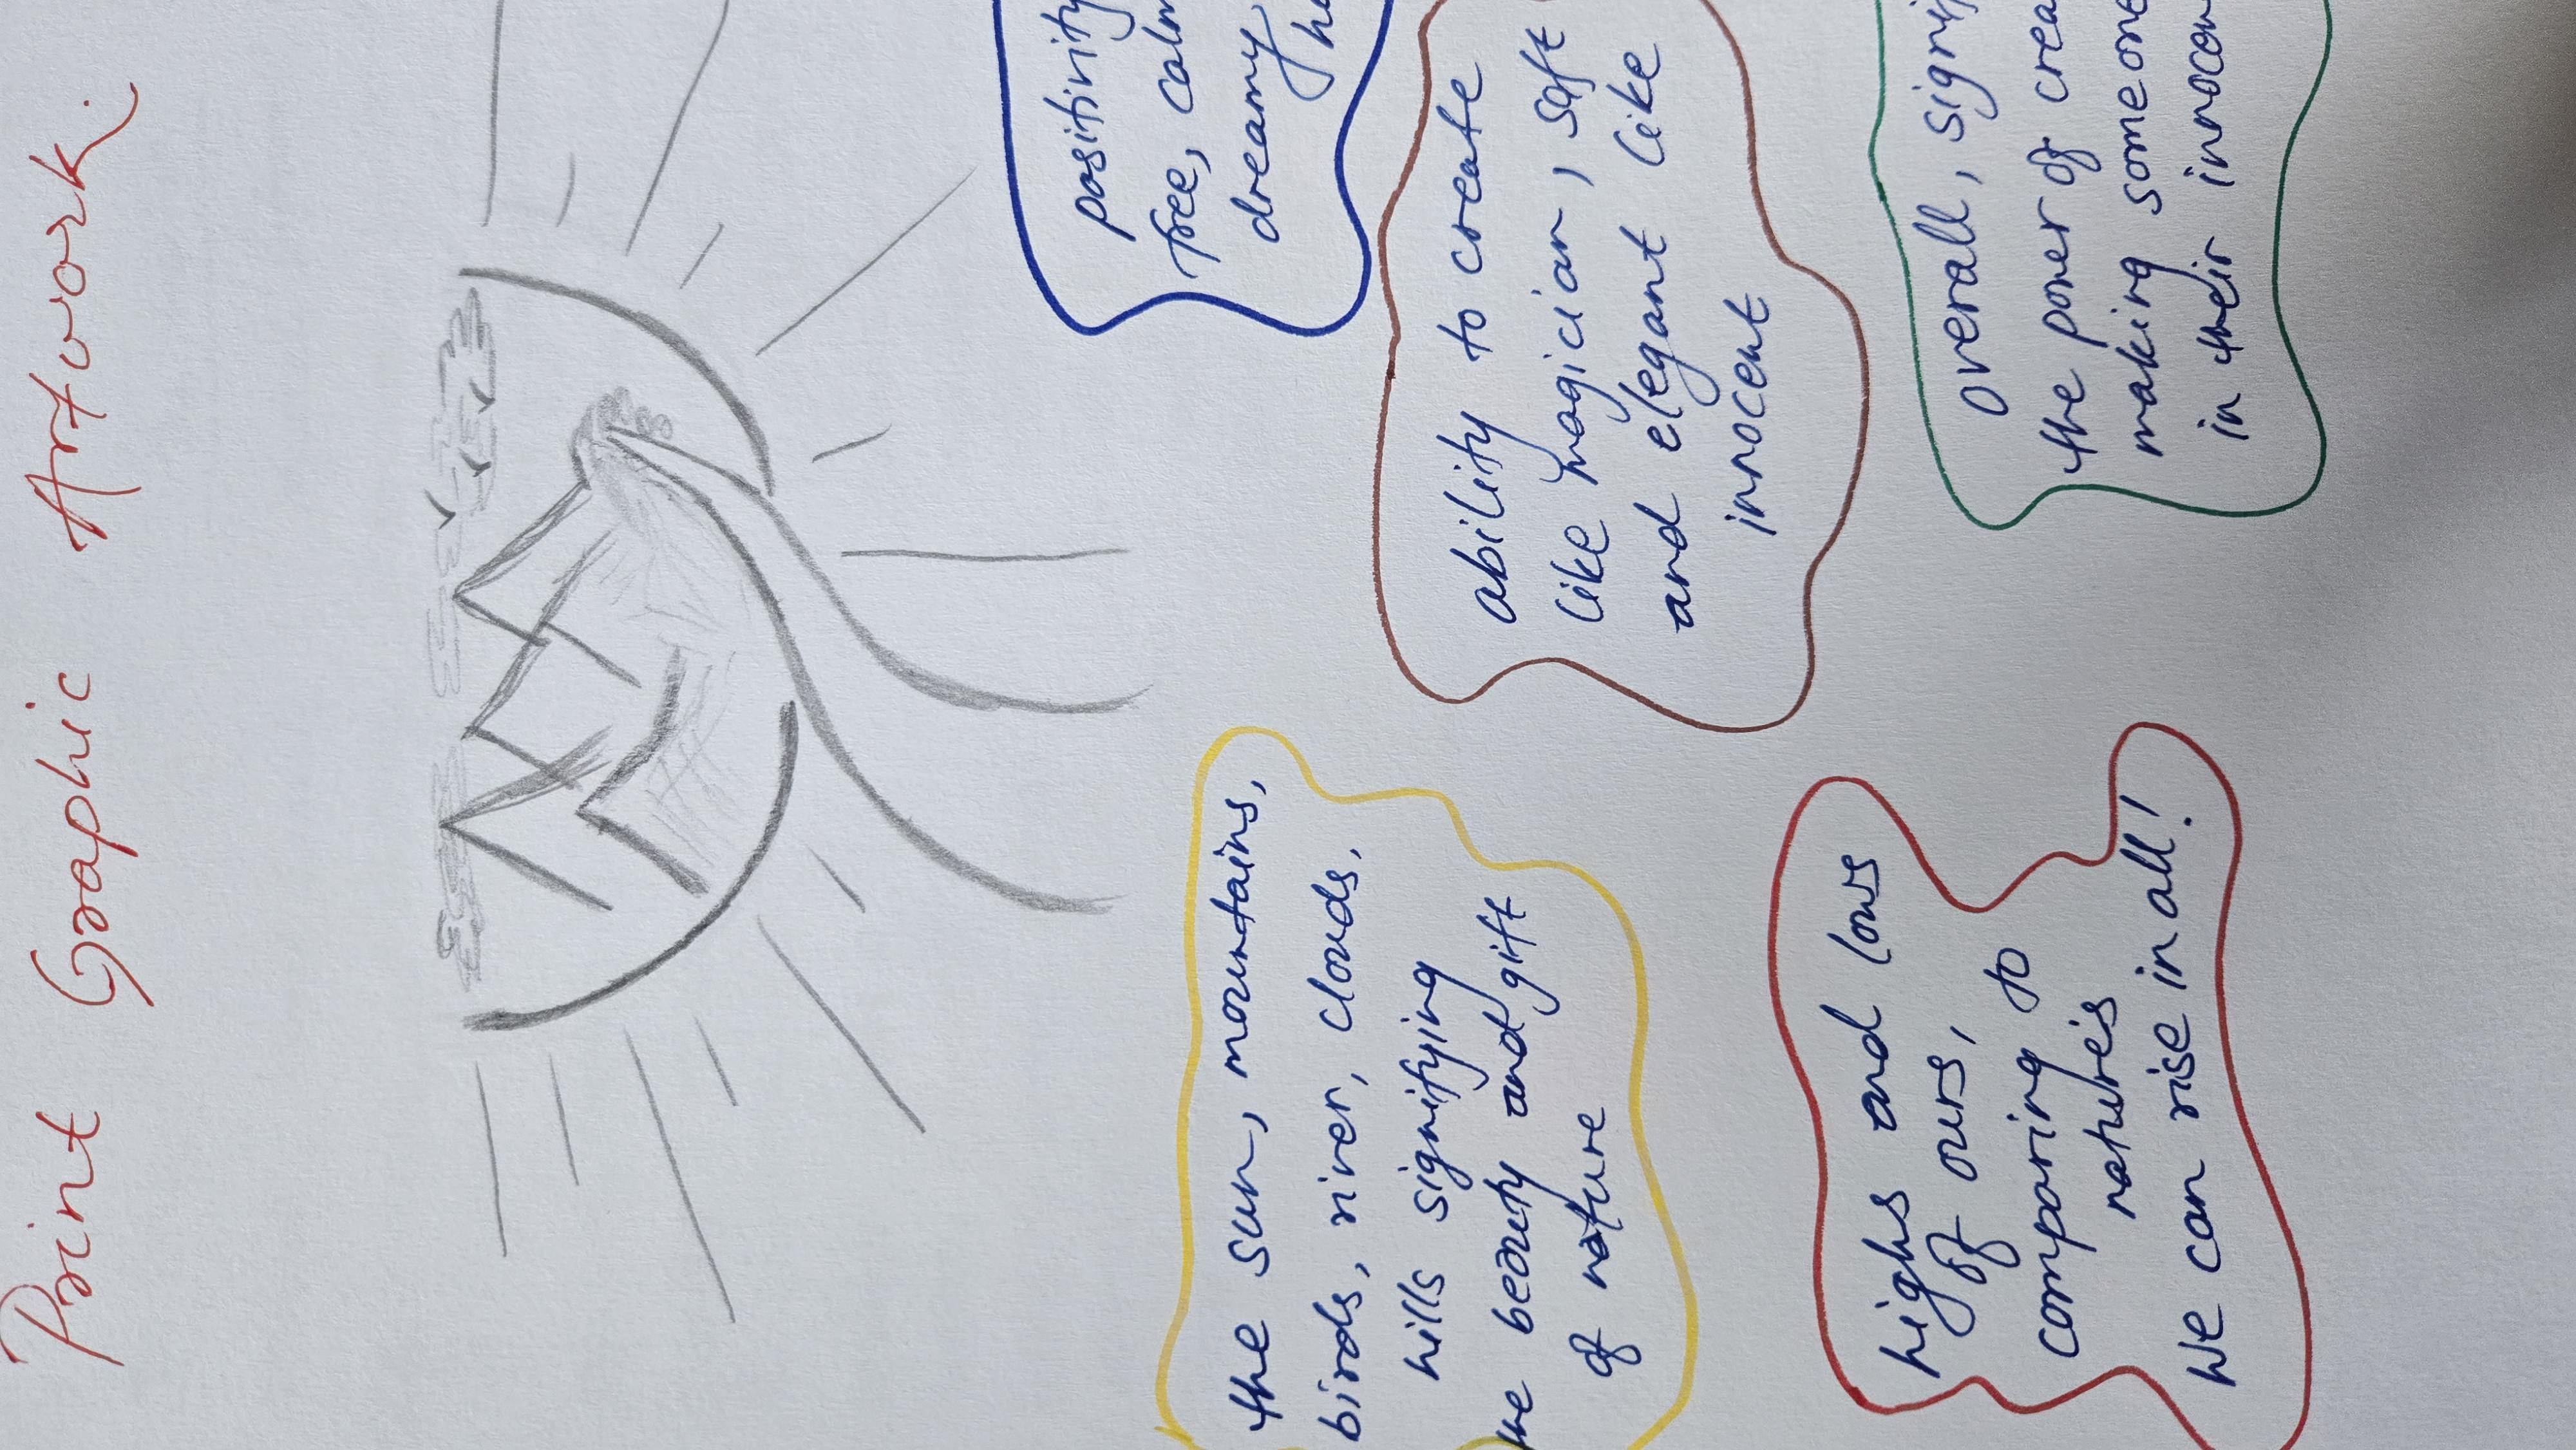 Print Graphic Artwork.
positivity
free, calm
dreamy
the sun, mountains,
birds, river, clouds,
hills signifying
the beauty and gift
of nature
ability to create
like magician, soft
and elegant like
innocent
highs and lows
of ours,
comparing to
nature's
We can rise in all!
overall,
the power of
making someone
in their